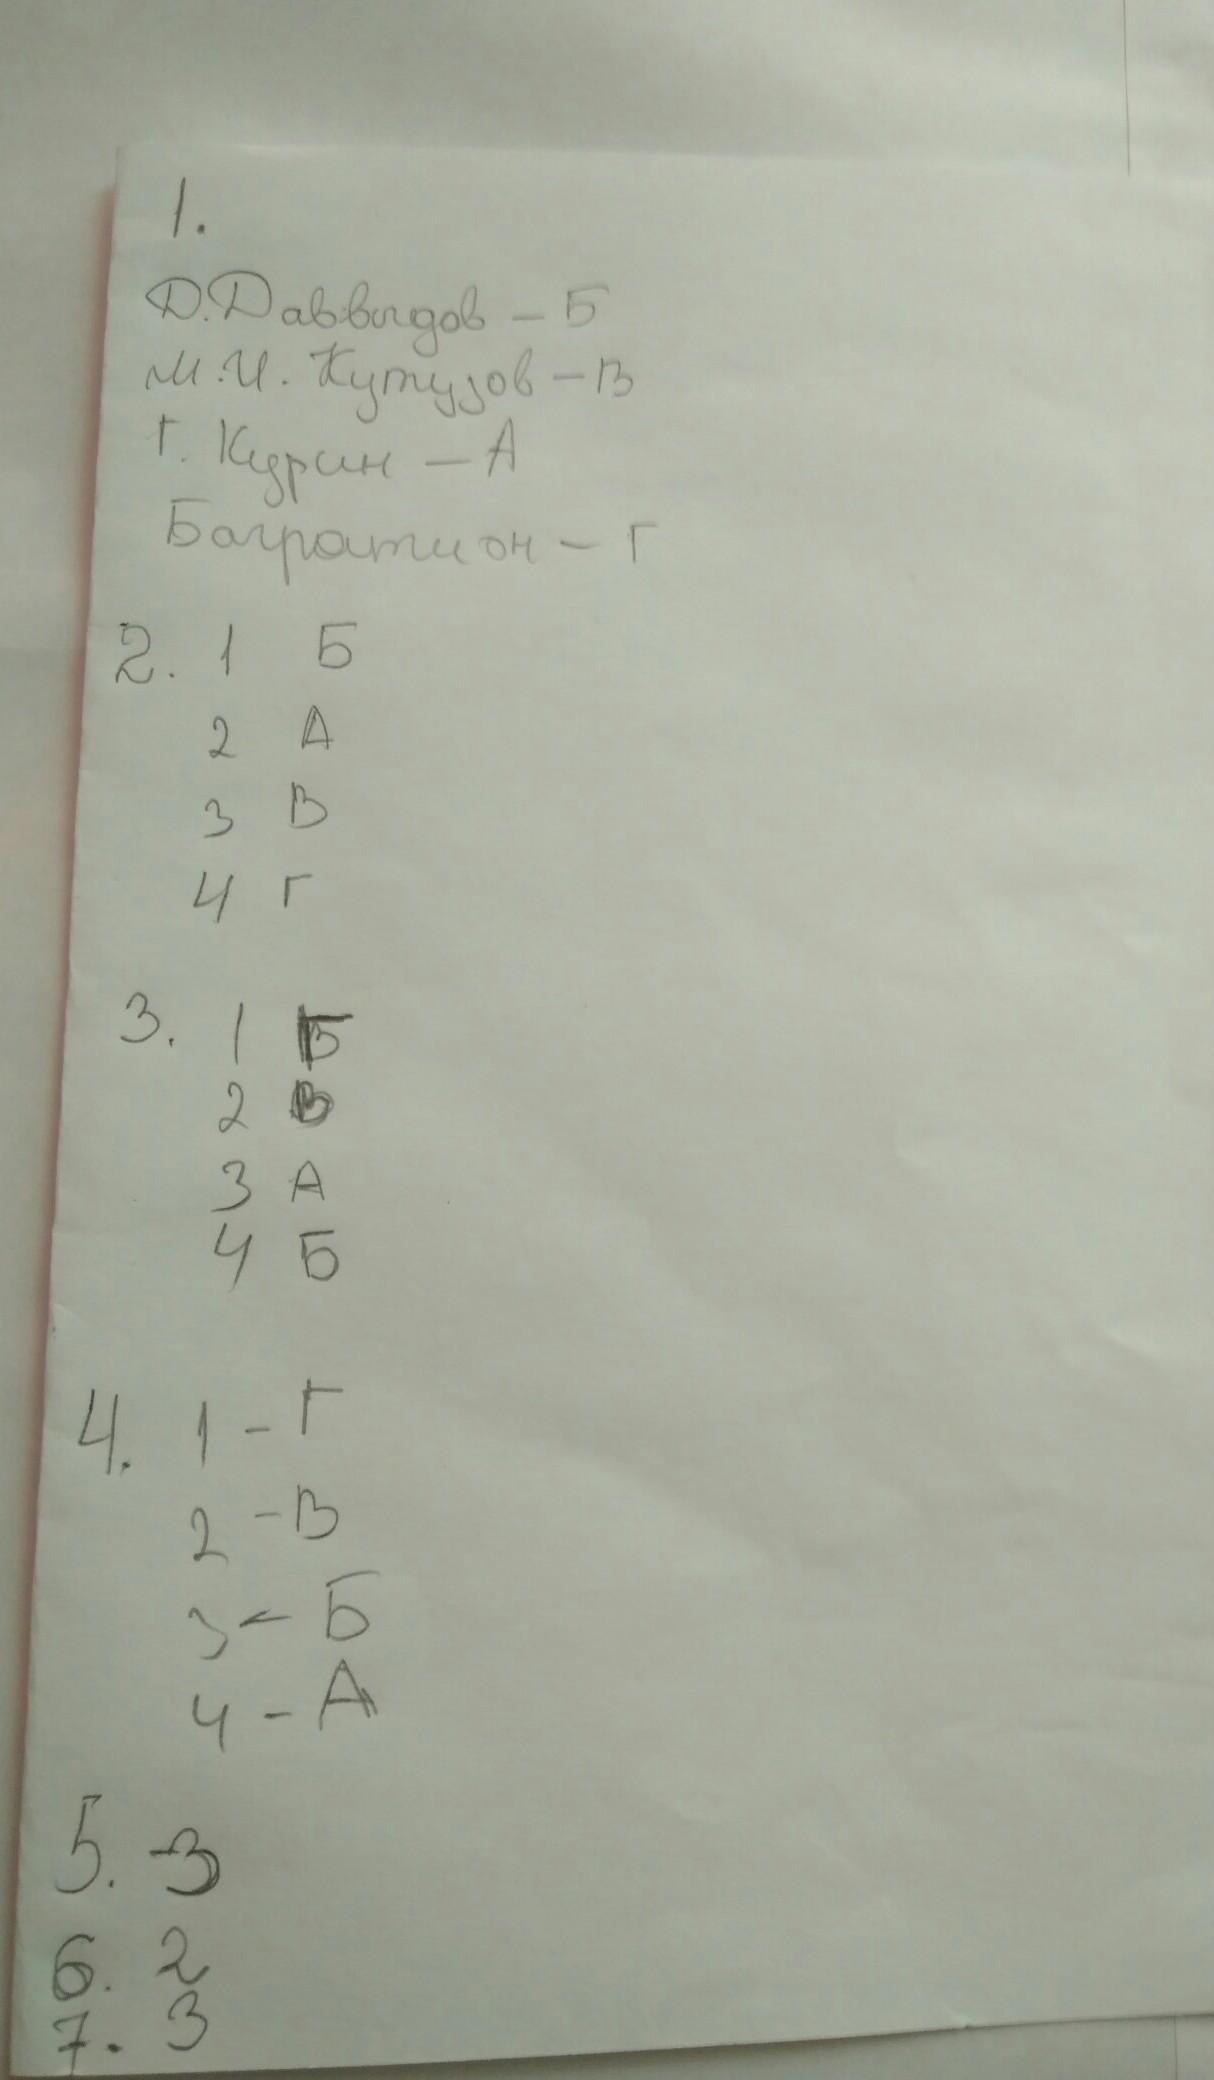 1.
Д. Даввыдов – Б
М.И. Кутузов – В
Г. Курин – А
Багратион – Г
2. 1 Б
2 А
3 В
4 Г
3. 1 Б
2 В
3 А
4 Б
4. 1 – Г
2 – В
3 – Б
4 – А
5. – 3
6. 2
7. 3